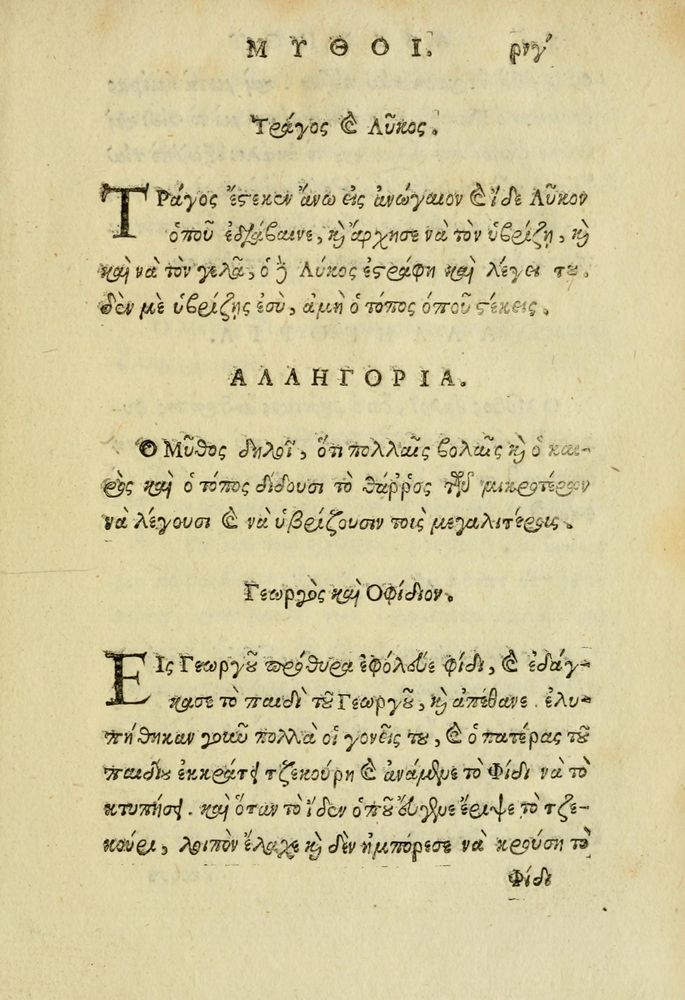 ΜΥΘΟΙ. ριγ'
Τράγος καὶ Λύκος.
ΤΡάγος ἔστεκεν ἄνω εἰς ἀνώγαιον καὶ ἴδε Λύκον
ὁποῦ ἐδιάβαινε, καὶ ἄρχησε νὰ τὸν ὑβρίζῃ, καὶ
καὶ νὰ τὸν γελᾷ, ὁ δὲ Λύκος ἐστράφη καὶ λέγει του,
δὲν μὲ ὑβρίζῃς ἐσὺ, ἀμὴ ὁ τόπος ὁποῦ στέκεις.
ΑΛΛΗΓΟΡΙΑ.
Ὁ Μῦθος δηλοῖ, ὅτι πολλαῖς βολαῖς καὶ ὁ και-
ρὸς καὶ ὁ τόπος δίδουσι τὸ θάῤῥος τῶν μικροτέρων
νὰ λέγουσι καὶ νὰ ὑβρίζουσιν τοὶς μεγαλιτέροις.
Γεωργὸς καὶ Οφίδιον.
ΕΙς Γεωργοῦ πρόθυρα ἐφόλευε φίδι, καὶ ἐδάγ-
κασε τὸ παιδὶ τοῦ Γεωργοῦ, καὶ ἀπέθανε. ἐλυ-
πήθηκαν γοιοῦν πολλὰ οἱ γονεῖς του, καὶ ὁ πατέρας τοῦ
παιδίου ἐκκράτει τζεκούρη καὶ ἀνάμενε τὸ Φίδι νὰ τὸ
κτυπήσει. καὶ ὅταν τὸ ἴδεν ὁποῦ ἔβγενε ἔριψε τὸ τζε-
κούρι, λοιπὸν ἔλαχε καὶ δὲν ἠμπόρεσε νὰ κρούσῃ τὸ
Φίδι